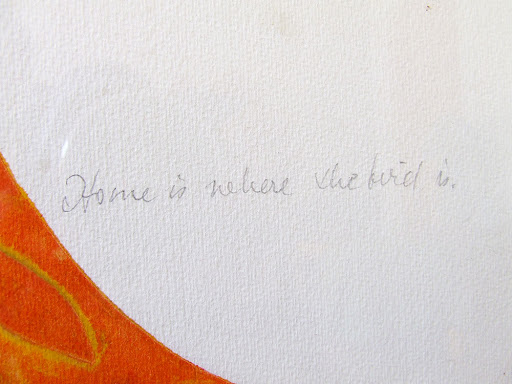 Home is where the bird is.